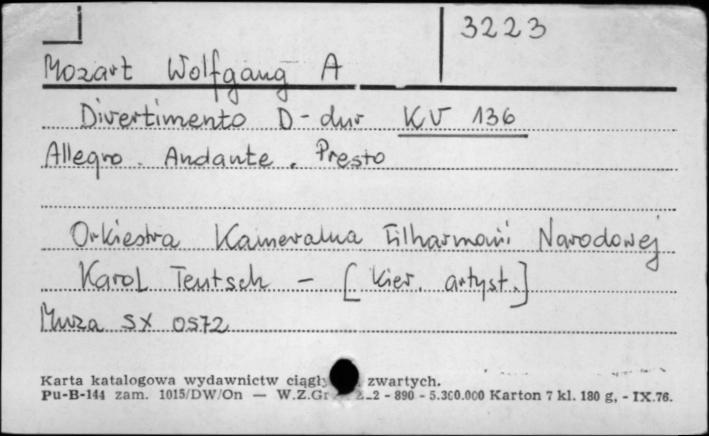 3223
Mozart Wolfgang A
Divertimento D-dur KV 136
Allegro. Andante. Presto
Orkiestra Kameralna Filharmonii Narodowej
Karol Teutsch – [kier. artyst.]
Muza SX 0572
Karta katalogowa wydawnictw zwartych.
Pu-B-144 zam. 1015/DW/On — W.Z.Gr -2 - 890 - 5.300.000 Karton 7 kl. 180 g. - IX.76.